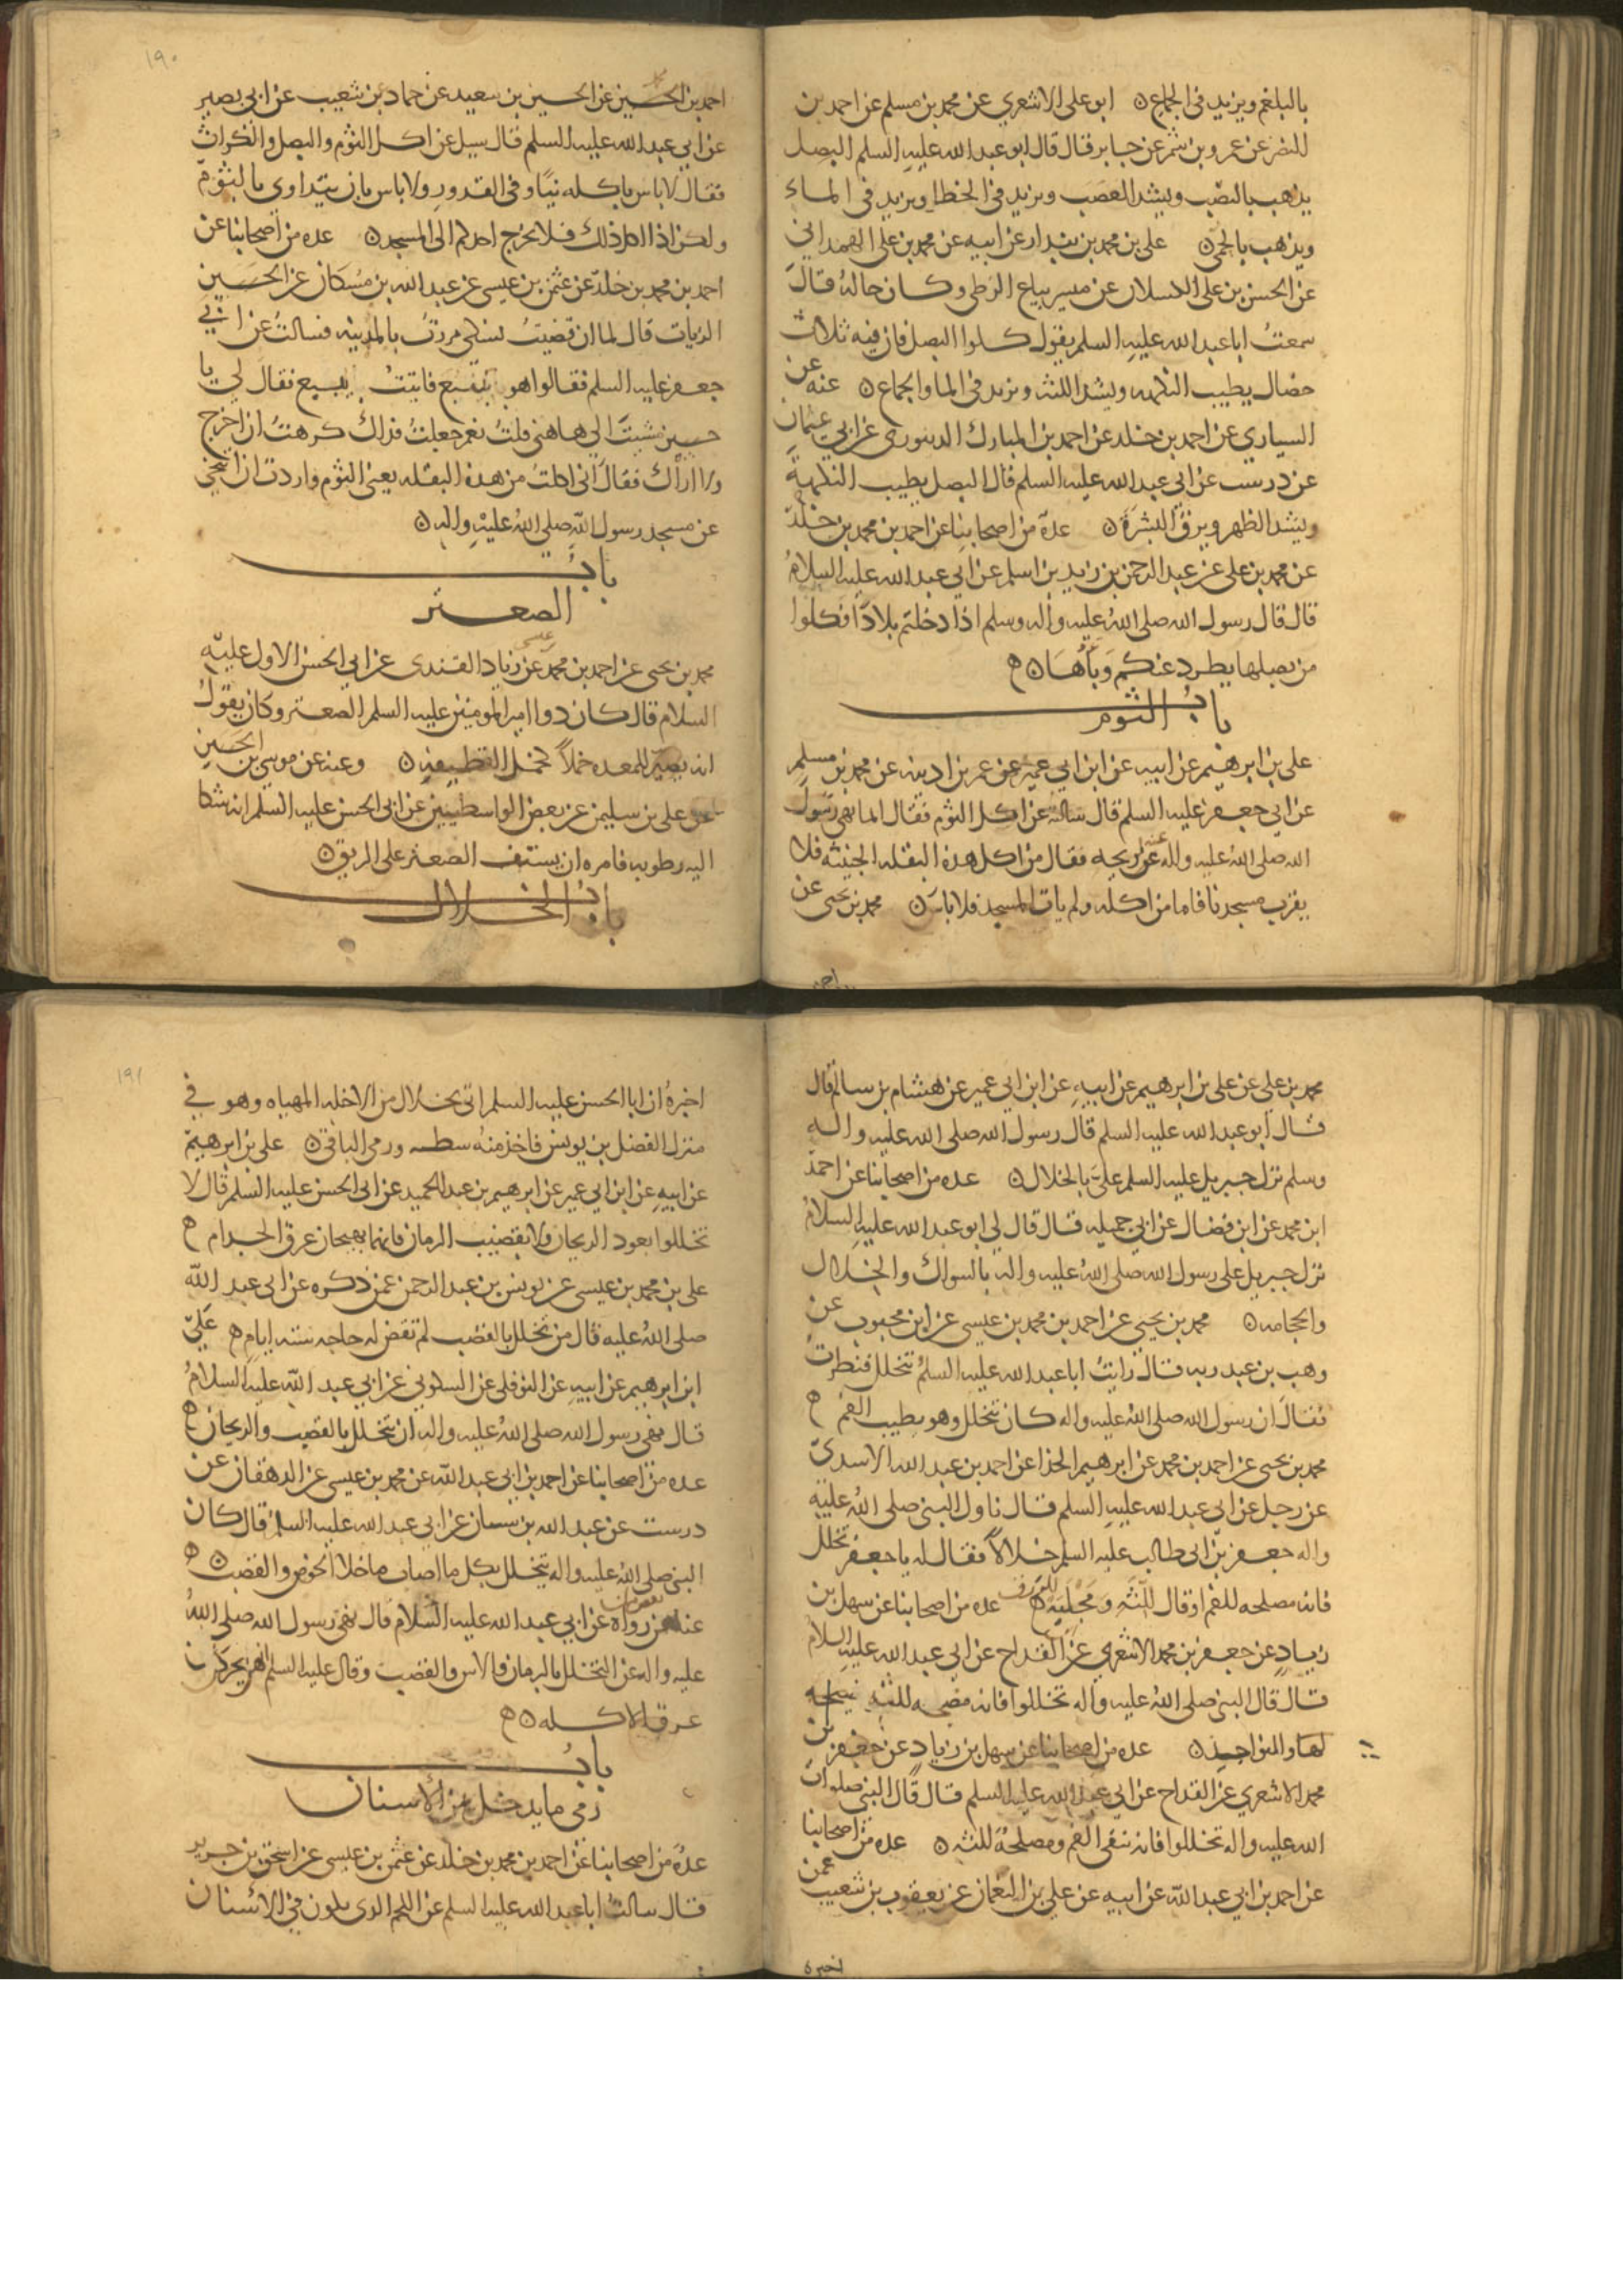 بالبلغم ويزيد فى الجماع ه ابو على الاشعري عن محمد بن مسلم عن احمد بن
النضر عن عمرو بن شمر عن جابر قال قال ابو عبد الله عليه السلم البصل
يذهب بالنصب ويشد العصب ويزيد فى الخطا ويزيد فى الماء
ويذهب بالحمى ه على بن محمد بن بندار عن ابيه عن محمد بن على الهمدانى
عن الحسن بن على الكسلان عن ميسر بياع الزطى وكان خاله قال
سمعت ابا عبد الله عليه السلم يقول كلوا البصل فان فيه ثلاث
خصال يطيب النكهه ويشد اللثه ويزيد فى الما والجماع ه عنه عن
السياري عن احمد بن خلد عن احمد بن المبارك الدينورى عن ابي عثمان
عن درست عن ابي عبد الله عليه السلم قال البصل يطيب النكهة
ويشد الظهر ويرق البشرة ه عدة من اصحابنا عن احمد بن محمد بن خلد
عن محمد بن على عن عبد الرحمن بن زيد بن اسلم عن ابي عبد الله عليه السلام
قال قال رسول الله صلى الله عليه واله وسلم اذا دخلتم بلادا فكلوا
من بصلها يطرد عنكم وباها ه
باب الثوم
على بن ابرهيم عن ابيه عن ابن ابي عمير عن عمر بن اذينه عن محمد بن مسلم
عن ابي جعفر عليه السلم قال سالته عن اكل الثوم فقال انما نهى رسول
الله صلى الله عليه واله عنه لريحه فقال من اكل هذه البقله الخبيثه فلا
يقرب مسجدنا فاما من اكله ولم يات المسجد فلا باس ه محمد بن يحيى عن
احمد
١٩٠
احمد بن محمد الحسين عن الحسين بن سعيد عن حماد بن شعيب عن ابي بصير
عن ابي عبد الله عليه السلم قال سيل عن اكل الثوم والبصل والكراث
فقال لا باس باكله نيا وفى القدور ولا باس بان يتداوى بالثوم
ولكن اذا اكل ذلك فلا يخرج احدكم الى المسجد ه عده من اصحابنا عن
احمد بن محمد بن خلد عن عثمن بن عيسى عن عبد الله بن مسكان عن الحسين
الزيات قال لما ان قضيت نسكى مررت بالمدينه فسالت عن ابي
جعفر عليه السلم فقالوا هو بينبع فاتيت ينبع فقال لي يا
حسين مشيت الي هاهنى قلت نعم جعلت فداك كرهت ان اخرج
ولا اراك فقال انى اكلت من هذه البقله يعنى الثوم واردت ان اتنحي
عن مسجد رسول الله صلى الله عليه واله ه
باب
الصعتر
محمد بن يحيى عن احمد بن محمد بن عيسى عن زياد القندى عن ابي الحسن الاول عليه
السلام قال كان دوا امير المومنين عليه السلم الصعتر وكان يقول
انه يصير للمعده خملا كخمل القطيفه ه وعنه عن موسى بن الحسين
عن على بن سليمن عن بعض الواسطيين عن ابى الحسن عليه السلم انه شكا
اليه رطوبه فامره ان يستف الصعتر على الريق ه
باب الخلال
محمد بن على عن على بن ابرهيم عن ابيه عن ابن ابي عمير عن هشام بن سالم قال
قال ابو عبد الله عليه السلم قال رسول الله صلى الله عليه واله
وسلم نزل جبريل عليه السلم علي بالخلال ه عده من اصحابنا عن احمد
ابن محمد عن ابن فضال عن ابي جميله قال قال لي ابو عبد الله عليه السلام
نزل جبريل على رسول الله صلى الله عليه واله بالسواك والخلال
والحجامه ه محمد بن يحيى عن احمد بن محمد بن عيسى عن ابن محبوب عن
وهب بن عبد ربه قال رايت ابا عبد الله عليه السلم تتخلل فنظرت
فقال ان رسول الله صلى الله عليه واله كان يتخلل وهو يطيب الفم
محمد بن يحيى عن احمد بن محمد عن ابرهيم الحذا عن احمد بن عبد الله الاسدى
عن رجل عن ابى عبد الله عليه السلم قال ناول النبى صلى الله عليه
واله جعفر بن ابى طالب عليه السلم خلالا فقال له يا جعفر تخلل
فانه مصلحه للفم او قال للثه ومجلبه للرزق عده من اصحابنا عن سهل بن
زياد عن جعفر بن محمد الاشعري عن القداح عن ابى عبد الله عليه السلام
قال قال النبى صلى الله عليه واله تخللوا فانه
لها والنواجذ ه عده من اصحابنا عن سهل بن زياد عن جعفر بن
محمد الاشعري عن القداح عن ابي عبد الله عليه السلم قال قال النبى صلوات
الله عليه واله تخللوا فانه ينقى الفم ومصلحة للثه ه عده من اصحابنا
عن احمد بن ابي عبد الله عن ابيه عن على بن النعمان عن يعقوب بن شعيب عمن
اخبره
١٩١
اخبره ان ابا الحسن عليه السلم اتى بخلال من الاخله المهياه وهو في
منزل الفضل بن يونس فاخذ منه شظيه ورمى الباقى ه على بن ابرهيم
عن ابيه عن ابن ابي عمير عن ابرهيم بن عبد الحميد عن ابى الحسن عليه السلم قال لا
تخللوا بعود الريحان ولا بقضيب الرمان فانهما يهيجان عرق الجذام
على بن محمد بن عيسى عن يونس بن عبد الرحمن عمن ذكره عن ابى عبد الله
صلى الله عليه قال من تخلل بالقصب لم تقض له حاجه سته ايام علي
ابن ابرهيم عن ابيه عن النوفلى عن السكوني عن ابي عبد الله عليه السلام
قال نهى رسول الله صلى الله عليه واله ان يتخلل بالقصب والريحان
عده من اصحابنا عن احمد بن ابي عبد الله عن محمد بن عيسى عن الدهقان عن
درست عن عبد الله بن سنان عن ابي عبد الله عليه السلم قال كان
النبى صلى الله عليه واله يتخلل بكل ما اصاب ما خلا الخوص والقصب ه
عنه عن بعض من رواه عن ابي عبد الله عليه السلام قال نهى رسول الله صلى الله
عليه واله عن التخلل بالرمان والاس والقصب وقال عليه السلم انهن يحركن
عرق الاكله ه
باب
رمى ما يدخل بين الاسنان
عدة من اصحابنا عن احمد بن محمد بن خلد عن عثمن بن عيسى عن اسحق بن جرير
قال سالت ابا عبد الله عليه السلم عن اللحم الذى يكون فى الاسنان